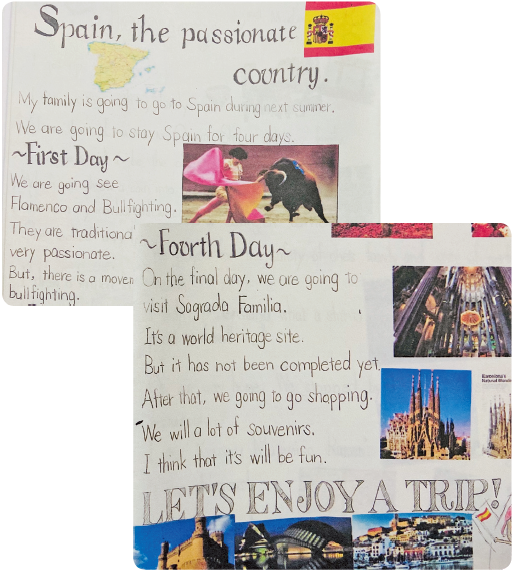 Spain, the passionate
country.
My family is going to go to Spain during next summer.
We are going to stay Spain for four days.
~First Day~
We are going see
Flamenco and Bullfighting.
They are traditional
very passionate.
But, there is a movem
bullfighting.
~Fourth Day~
On the final day, we are going to
visit Sagrada Familia.
It's a world heritage site.
But it has not been completed yet.
After that, we going to go shopping.
We will a lot of souvenirs.
I think that it's will be fun.
LET'S ENJOY A TRIP!
Barcelona's